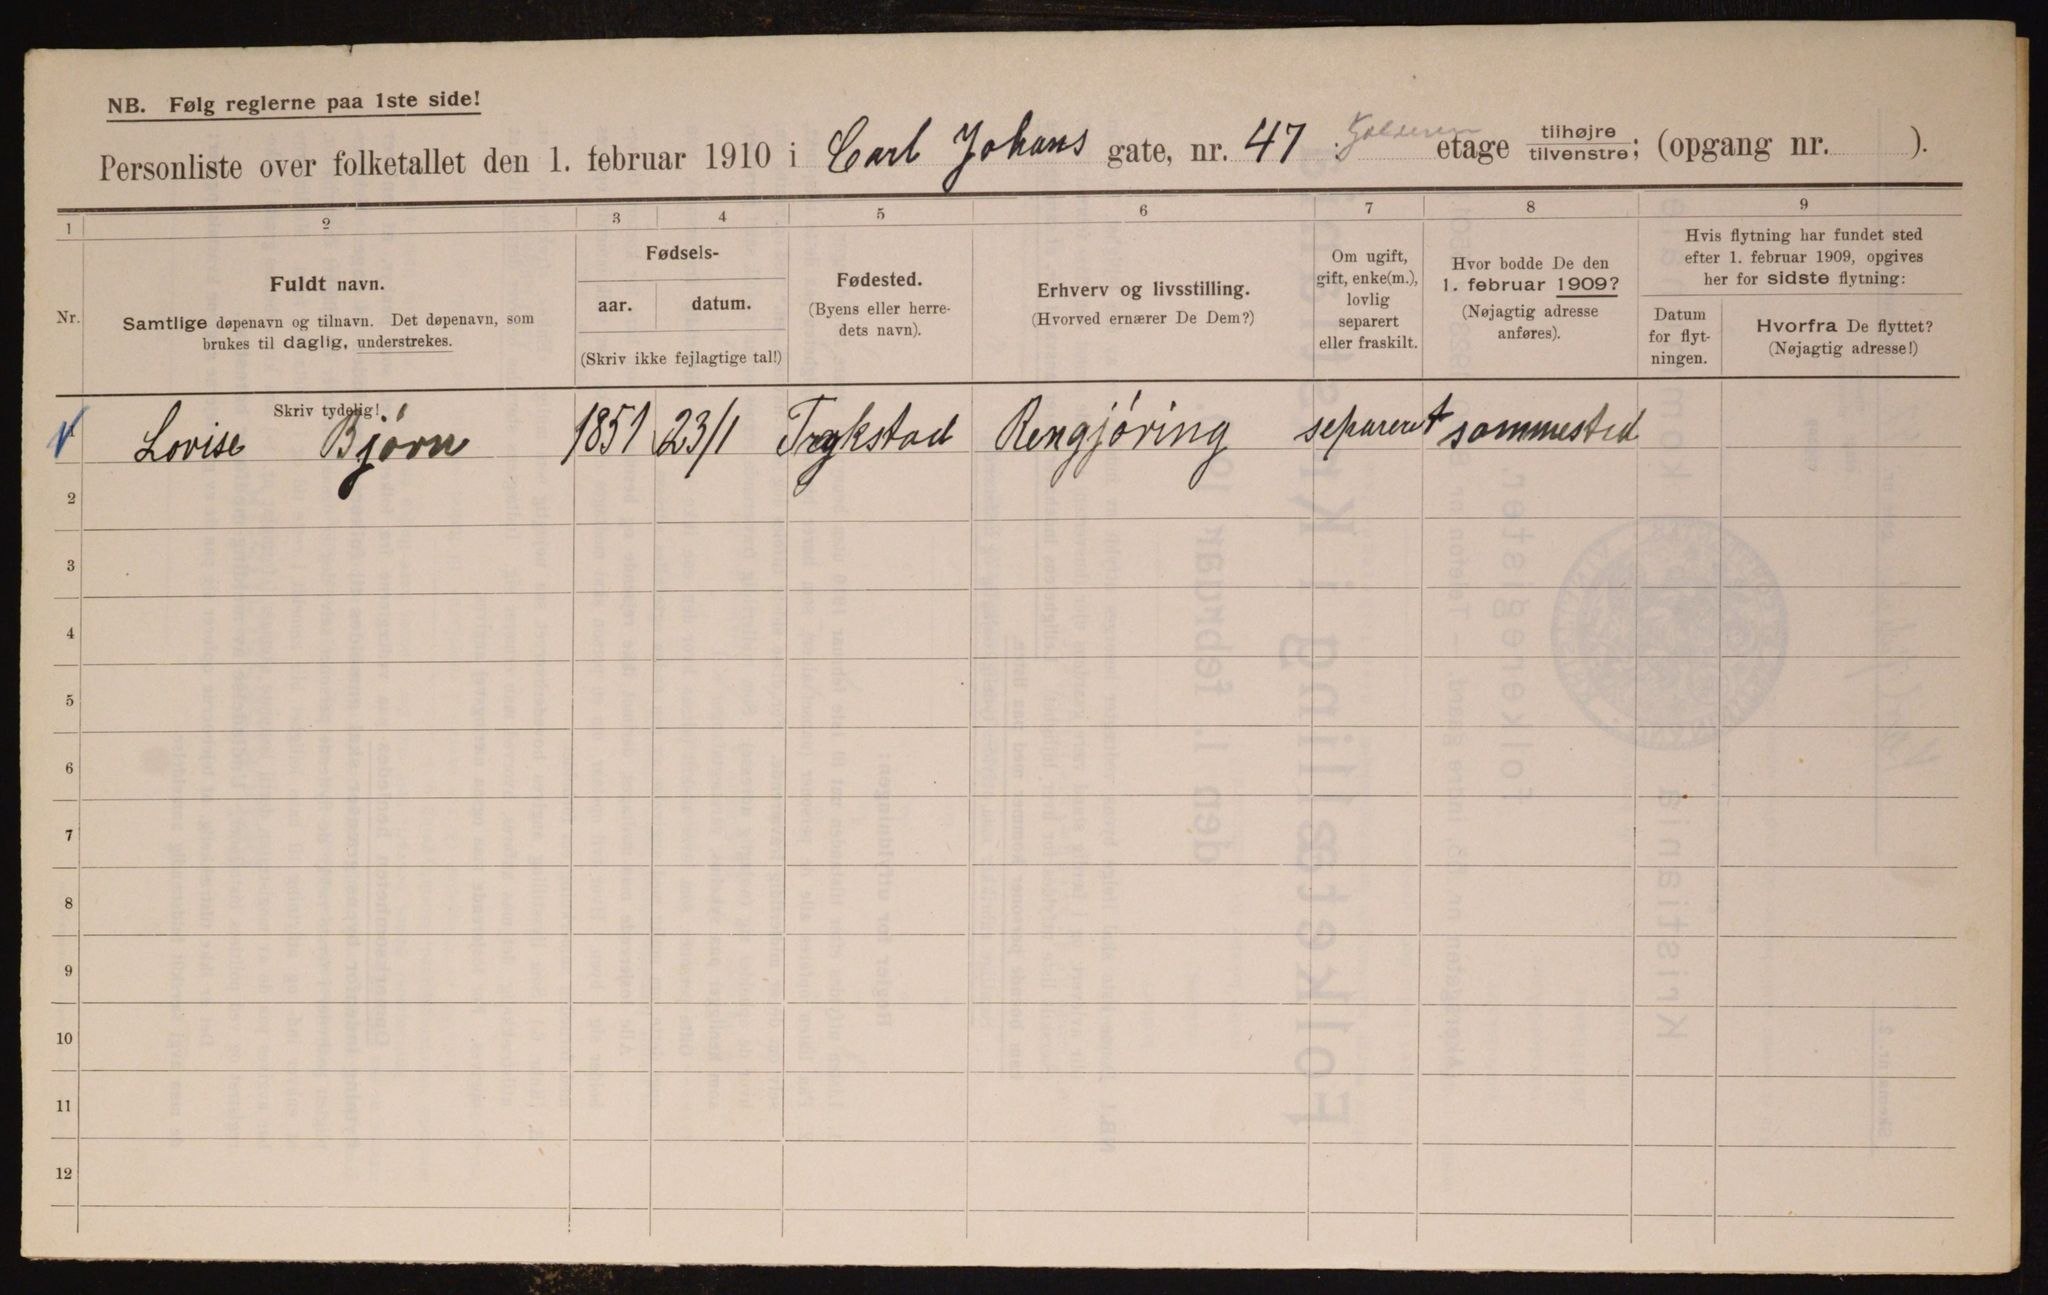 NB. Følg reglerne paa 1ste side!
Personliste over folketallet den 1. februar 1910 i Carl Johans gate, nr. 47 etage tilhøjre/tilvenstre; (opgang nr. ).
1 2 3 4 5 6 7 8 9
Nr.
Fuldt navn.
Samtlige døpenavn og tilnavn. Det døpenavn, som
brukes til daglig, understrekes.
Skriv tydelig!
Fødsels-
aar. datum.
(Skriv ikke fejlagtige tal!)
Fødested.
(Byens eller herre-
dets navn).
Erhverv og livsstilling.
(Hvorved ernærer De Dem?)
Om ugift,
gift, enke(m.),
lovlig
separert
eller fraskilt.
Hvor bodde De den
1. februar 1909?
(Nøjagtig adresse
anføres).
Hvis flytning har fundet sted
efter 1. februar 1909, opgives
her for sidste flytning:
Datum
for flyt-
ningen.
Hvorfra De flyttet?
(Nøjagtig adresse!)
Lovise Bjørn 1851 23/1 Trykstad Rengjøring separeret sammested
2
3
4
5
6
7
8
9
10
11
12